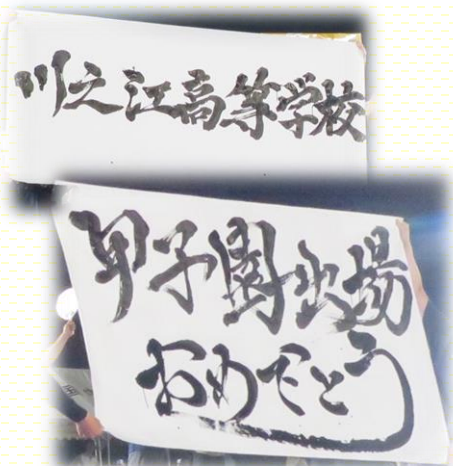 川之江高等学校
甲子園出場
おめでとう